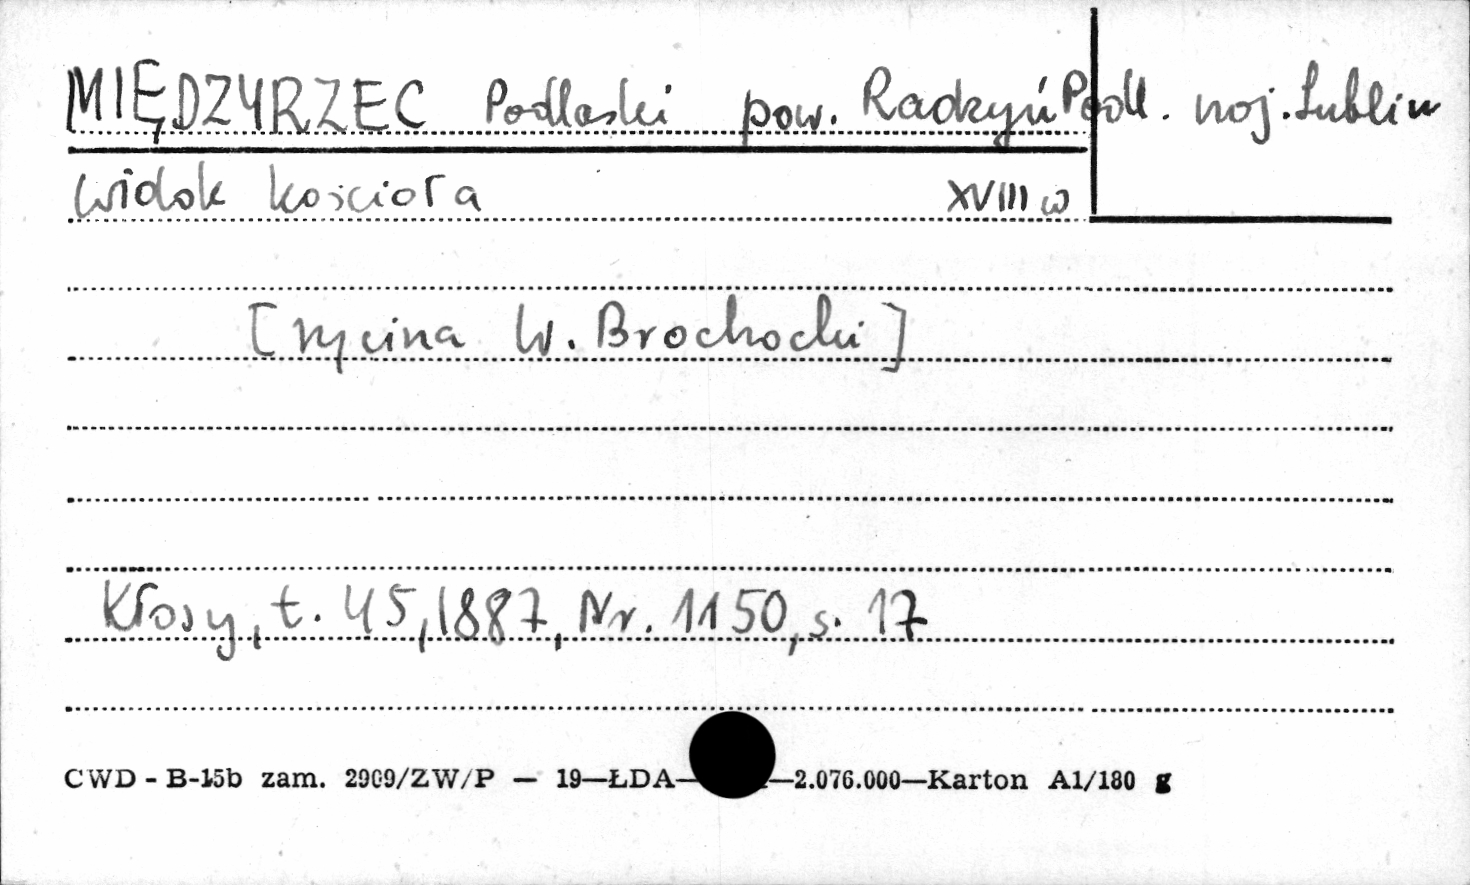 MIĘDZYRZEC Podlaski pow. Radzyń Podl. woj. Lublin
Widok kościoła XVIII w
[rycina W. Brochocki]
Kłosy, t. 45, 1887, Nr. 1150, s. 17
CWD - B-15b zam. 2909/ZW/P — 19—ŁDA— —2.076.000—Karton A1/180 g